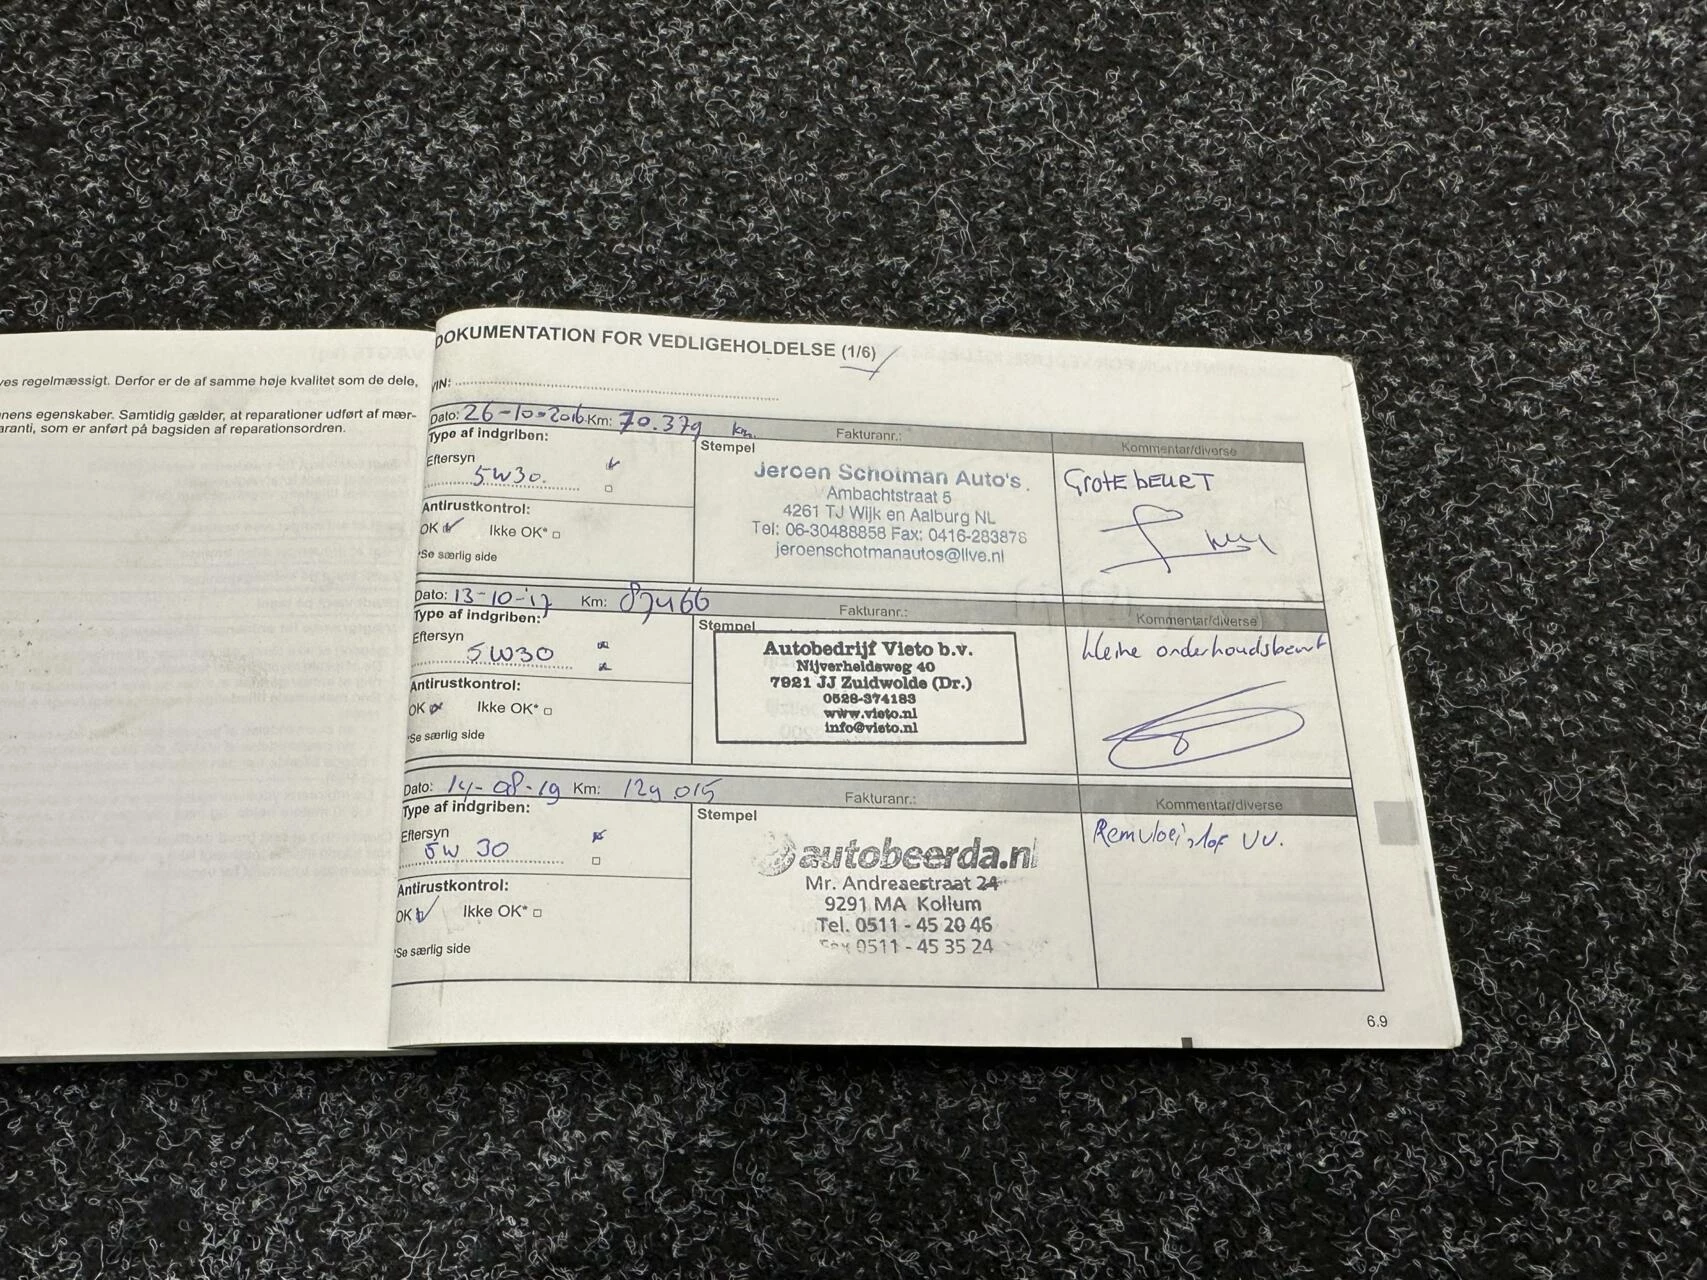 ves regelmæssigt. Derfor er de af samme høje kvalitet som de dele,
nens egenskaber. Samtidig gælder, at reparationer udført af mær-
aranti, som er anført på bagsiden af reparationsordren.
DOKUMENTATION FOR VEDLIGEHOLDELSE (1/6)
VIN:
Dato: 26-10-2016 Km: 70.379 km. Fakturanr.: Kommentar/diverse
Type af indgriben:
Stempel
Eftersyn
5W30.
Antirustkontrol:
OK Ikke OK*
*Se særlig side
Jeroen Schotman Auto's.
Ambachtstraat 5
4261 TJ Wijk en Aalburg NL
Tel: 06-30488858 Fax: 0416-283878
jeroenschotmanautos@live.nl
Grote beurt
Dato: 13-10-'17 Km: 87466 Fakturanr.: Kommentar/diverse
Type af indgriben:
Stempel
Eftersyn
5W30
Antirustkontrol:
OK Ikke OK*
*Se særlig side
Autobedrijf Vieto b.v.
Nijverheidsweg 40
7921 JJ Zuidwolde (Dr.)
0528-374183
www.vieto.nl
info@vieto.nl
kleine onderhoudsbeurt
Dato: 14-08-19 Km: 129.015 Fakturanr.: Kommentar/diverse
Type af indgriben:
Stempel
Eftersyn
5W 30
Antirustkontrol:
OK Ikke OK*
*Se særlig side
autobeerda.nl
Mr. Andreaestraat 24
9291 MA Kollum
Tel. 0511 - 45 20 46
Fax 0511 - 45 35 24
Remvloeistof VV.
6.9